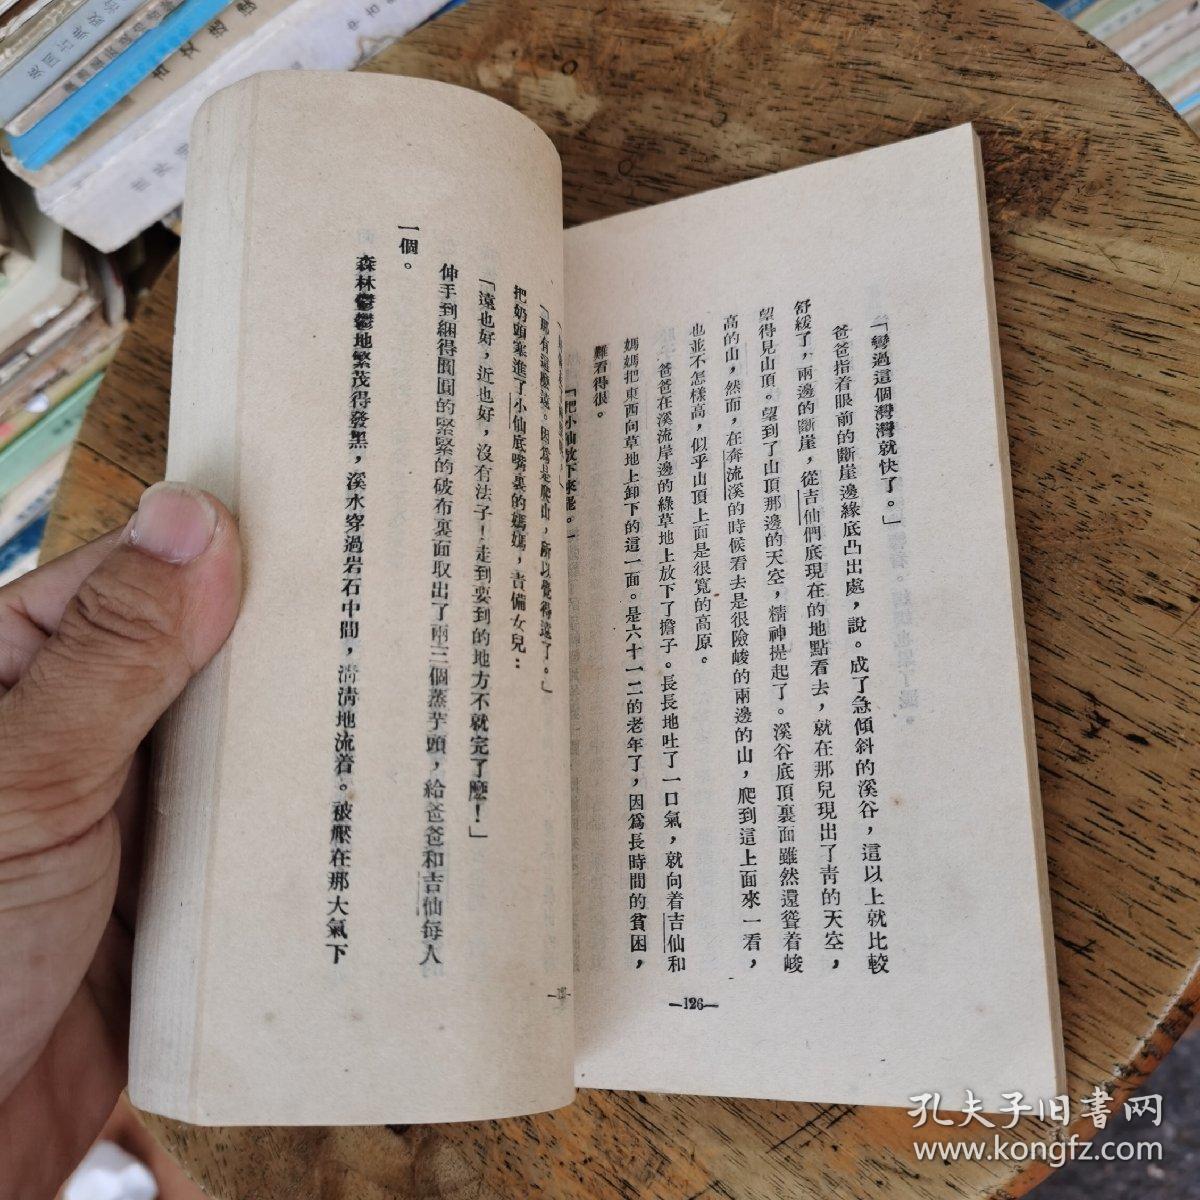 「彎過這個灣灣就快了。」
爸爸指着眼前的斷崖邊緣底凸出處，說。成了急傾斜的溪谷，這以上就比較
舒緩了，兩邊的斷崖，從吉仙們底現在的地點看去，就在那兒現出了靑的天空，
望得見山頂。望到了山頂那邊的天空，精神提起了。溪谷底頂裏面雖然還聳着峻
高的山，然而，在奔流溪的時候看去是很險峻的兩邊的山，爬到這上面來一看，
也並不怎樣高，似乎山頂上面是很寬的高原。
爸爸在溪流岸邊的綠草地上放下了擔子。長長地吐了一口氣，就向着吉仙和
媽媽把東西向草地上卸下的這一面。是六十一二的老年了，因爲長時間的貧困，
難看得很。
「把小仙放下來罷。」
—126—
「那有這麽遠。因爲是爬山，所以覺得遠了。」
把奶頭塞進了小仙底嘴裏的媽媽，吿備女兒：
「遠也好，近也好，沒有法子！走到要到的地方不就完了麽！」
伸手到綑得圓圓的緊緊的破布裏面取出了兩三個蒸芋頭，給爸爸和吉仙每人
一個。
森林鬱鬱地繁茂得發黑，溪水穿過岩石中間，淸淸地流着。被壓在那大氣下
孔夫子旧書网
www.kongfz.com